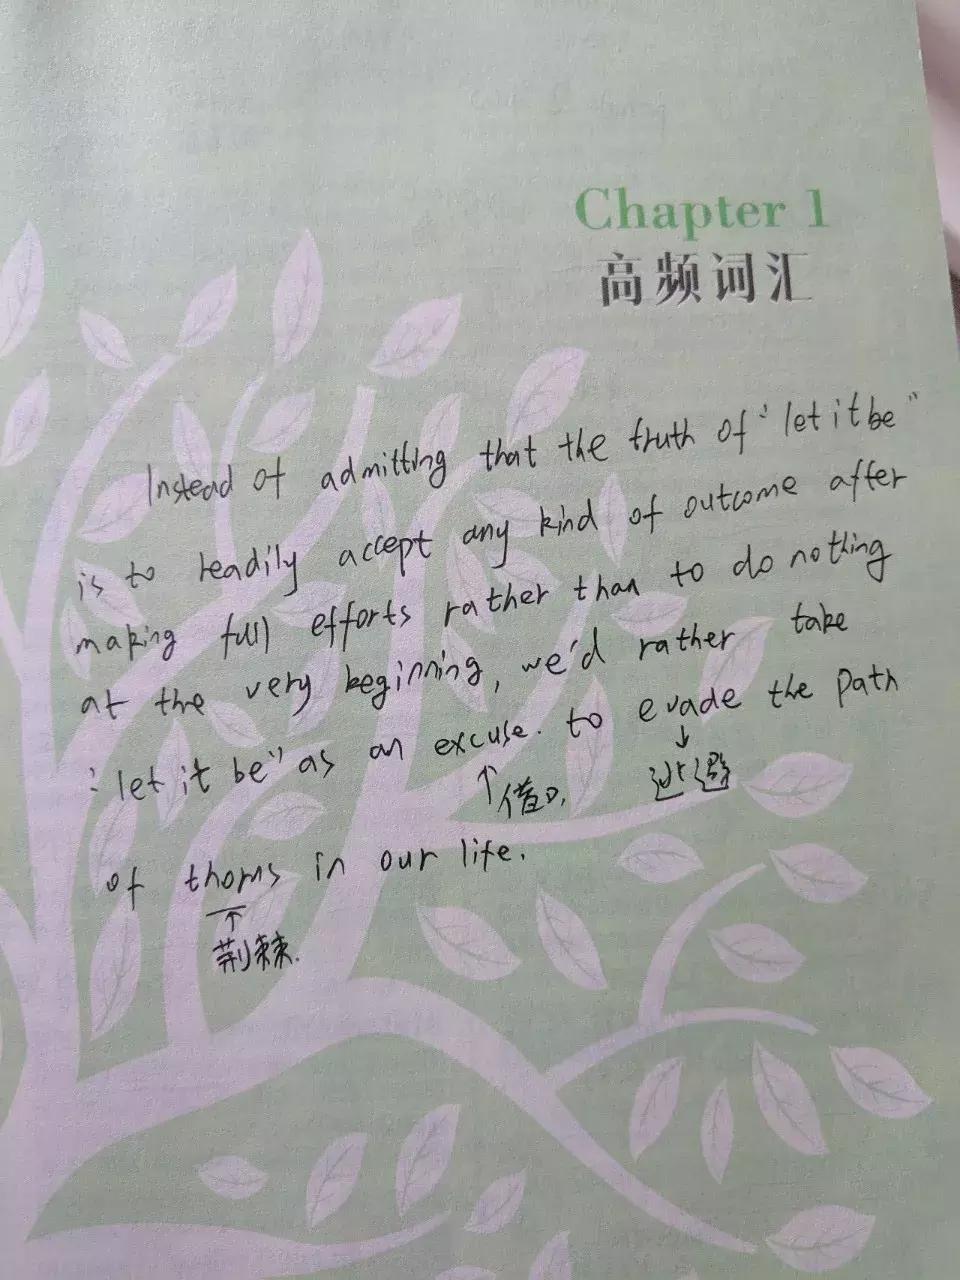 Chapter 1
高频词汇
Instead of admitting that the truth of "let it be"
is to readily accept any kind of outcome after
making full efforts rather than to do nothing
at the very beginning, we'd rather take
"let it be" as an excuse. to evade the path
↑借口, ↓逃避
of thorns in our life.
↑
荆棘.